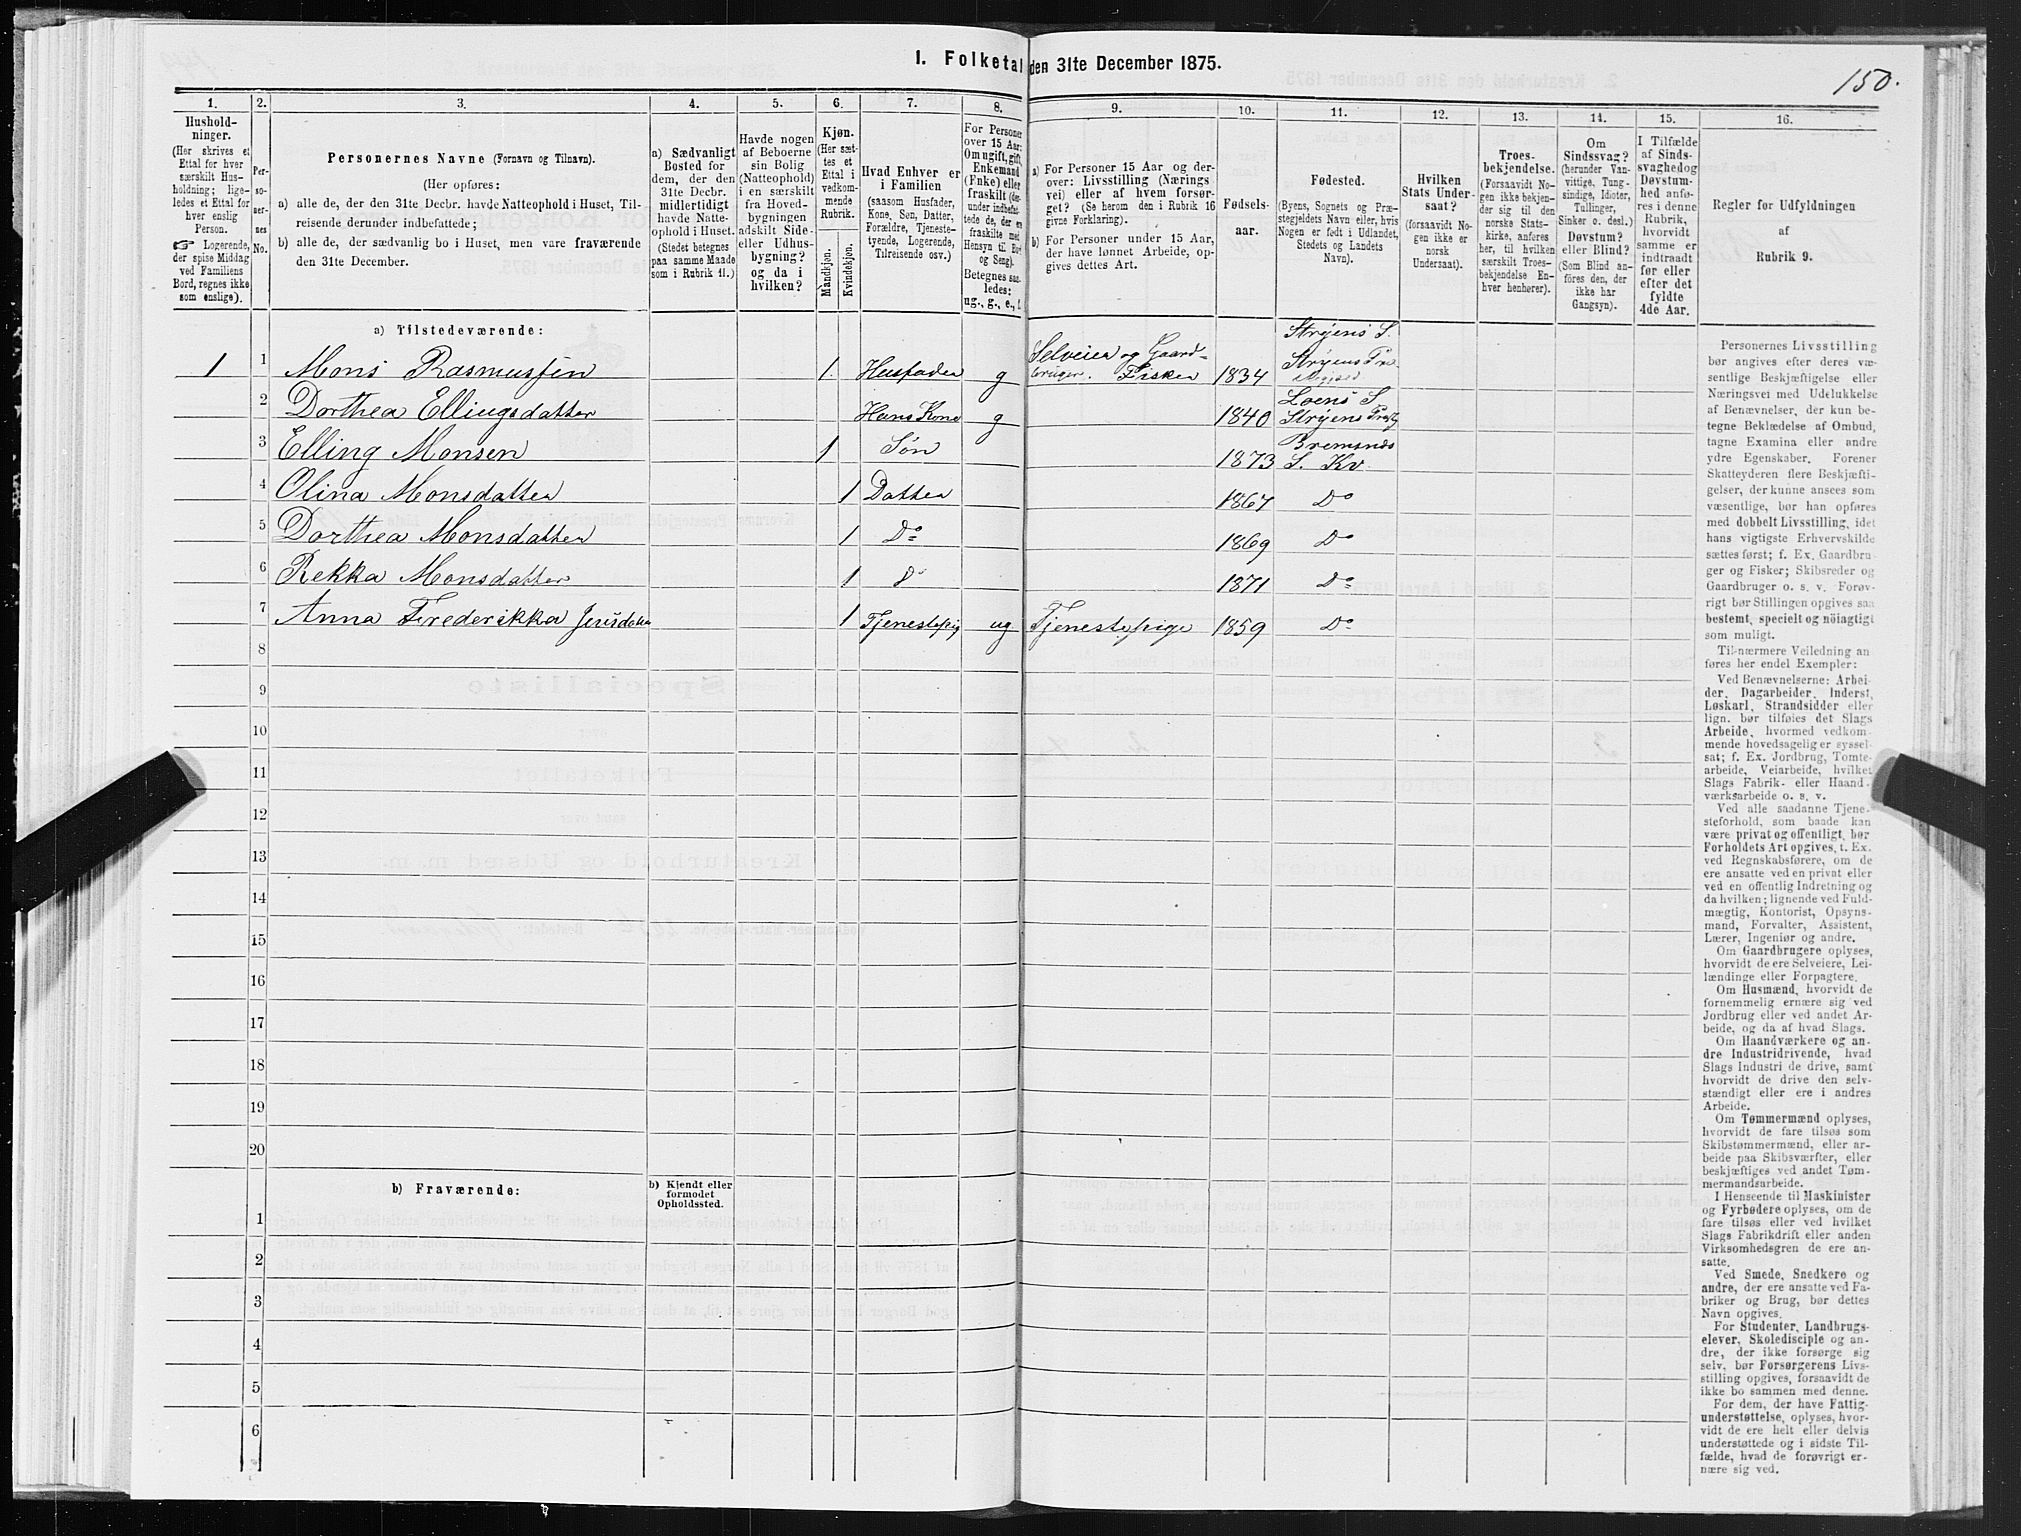 1. Folketal den 31te December 1875.
150.
1. 2. 3. 4. 5. 6. 7. 8. 9. 10. 11. 12. 13. 14. 15. 16.
Hushold-
ninger.
(Her skrives et
Ettal for hver
særskilt Hus-
holdning; lige-
ledes et Ettal for
hver enslig
Person.
☞ Logerende,
der spise Middag
ved Familiens
Bord, regnes ikke
som enslige).
Per-
so-
ner-
nes
No.
Personernes Navne (Fornavn og Tilnavn).
(Her opføres:
a) alle de, der den 31te Decbr. havde Natteophold i Huset, Til-
reisende derunder indbefattede;
b) alle de, der sædvanlig bo i Huset, men vare fraværende
den 31te December.
a) Sædvanligt
Bosted for
dem, der den
31te Decbr.
midlertidigt
havde Natte-
ophold i Huset.
(Stedet betegnes
paa samme Maade
som i Rubrik 11.)
Havde nogen
af Beboerne
sin Bolig
(Natteophold)
i en særskilt
fra Hoved-
bygningen
adskilt Side-
eller Udhus-
bygning?
og da i
hvilken?
Kjøn.
(Her sæt-
tes et
Ettal i
vedkom-
mende
Rubrik.
Mandkjøn.
Kvindekjøn.
Hvad Enhver er
i Familien
(saasom Husfader,
Kone, Søn, Datter,
Forældre, Tjeneste-
tyende, Logerende,
Tilreisende osv.)
For Personer
over 15 Aar:
Om ugift, gift,
Enkemand
(Enke) eller
fraskilt (der-
under indbefat-
tede de, der ere
fraskilte med
Hensyn til Bord
og Seng).
Betegnes saa-
ledes:
ug., g., e., f.
a) For Personer 15 Aar og der-
over: Livsstilling (Nærings-
vei) eller af hvem forsør-
get? (Se herom den i Rubrik 16
givne Forklaring).
b) For Personer under 15 Aar,
der have lønnet Arbeide, op-
gives dettes Art.
Fødsels-
aar.
Fødested.
(Byens, Sognets og Præ-
stegjeldets Navn eller, hvis
Nogen er født i Udlandet,
Stedets og Landets
Navn).
Hvilken
Stats Under-
saat?
(forsaavidt No-
gen ikke er
norsk
Undersaat).
Troes-
bekjendelse.
(Forsaavidt No-
gen ikke bekjen-
der sig til den
norske Stats-
kirke, anføres
her, til hvilken
særskilt Troes-
bekjendelse En-
hver henhører).
Om
Sindssvag?
(herunder Van-
vittige, Tung-
sindige, Idioter,
Tullinger,
Sinker o. desl.)
Døvstum?
eller Blind?
(Som Blind an-
føres den, der
ikke har
Gangsyn).
I Tilfælde
af Sinds-
svaghed og
Døvstum-
hed anfø-
res i denne
Rubrik,
hvorvidt
samme er
indtraadt
før eller
efter det
fyldte
4de Aar.
Regler for Udfyldningen
af
Rubrik 9.
a) Tilstedeværende:
1 1 Mons Rasmussen 1. Husfader g Selveier og Gaard-
bruger. Fisker 1834 Stryens S.
Stryens Præ
2 Dorthea Ellingsdatter Hans Kone g 1840 Loens S.
Stryens Præstg
3 Elling Monsen 1 Søn 1873 Bremsnes
S. Kv.
4 Olina Monsdatter 1 Datter 1867 Do
5 Dorthea Monsdatter 1 Do 1869 Do
6 Rekka Monsdatter 1 Do 1871 Do
7 Anna Frederikka Jensdatter 1 Tjenestepig ug Tjenestepige 1859 Do
8
9
10
11
12
13
14
15
16
17
18
19
20
b) Fraværende:
b) Kjendt eller
formodet
Opholdssted.
1
2
3
4
5
6
Personernes Livsstilling
bør angives efter deres væ-
sentlige Beskjæftigelse eller
Næringsvei med Udelukkelse
af Benævnelser, der kun be-
tegne Beklædelse af Ombud,
tagne Examina eller andre
ydre Egenskaber. Forener
Skatteyderen flere Beskjæfti-
gelser, der kunne ansees som
væsentlige, bør han opføres
med dobbelt Livsstilling, idet
hans vigtigste Erhvervskilde
sættes først; f. Ex. Gaardbru-
ger og Fisker; Skibsreder og
Gaardbruger o. s. v. Forøv-
rigt bør Stillingen opgives saa
bestemt, specielt og nöiagtigt
som muligt.
Til nærmere Veiledning an-
føres her endel Exempler:
Ved Benævnelserne: Arbei-
der, Dagarbeider, Inderst,
Løskarl, Strandsidder eller
lign. bør tilføies det Slags
Arbeide, hvormed vedkom-
mende hovedsagelig er syssel-
sat; f. Ex. Jordbrug, Tomte-
arbeide, Veiarbeide, hvilket
Slags Fabrik- eller Haand-
værksarbeide o. s. v.
Ved alle saadanne Tjene-
steforhold, som baade kan
være privat og offentligt, bør
Forholdets Art opgives, t. Ex.
ved Regnskabsførere, om de
ere ansatte ved en privat eller
ved en offentlig Indretning og
da hvilken; lignende ved Fuld-
mægtig, Kontorist, Opsyns-
mand, Forvalter, Assistent,
Lærer, Ingeniør og andre.
Om Gaardbrugere oplyses,
hvorvidt de ere Selveiere, Lei-
lændinge eller Forpagtere.
Om Husmænd, hvorvidt de
fornemmelig ernære sig ved
Jordbrug eller ved andet Ar-
beide, og da af hvad Slags.
Om Haandværkere og an-
dre Industridrivende, hvad
Slags Industri de drive, samt
hvorvidt de drive den selv-
stændigt eller ere i andres
Arbeide.
Om Tømmermænd oplyses,
hvorvidt de fare tilsøs som
Skibstømmermænd, eller ar-
beide paa Skibsværfter, eller
beskjæftiges ved andet Tøm-
mermandsarbeide.
I Henseende til Maskinister
og Fyrbødere oplyses, om de
fare tilsøs eller ved hvilket
Slags Fabrikdrift eller anden
Virksomhedsgren de ere an-
satte.
Ved Smede, Snedkere og
andre, der ere ansatte ved Fa-
briker og Brug, bør dettes
Navn opgives.
For Studenter, Landbrugs-
elever, Skoledisciple og an-
dre, der ikke forsørge sig
selv, bør Forsørgerens Livs-
stilling opgives, forsaavidt de
ikke bo sammen med denne.
For dem, der have Fattig-
understøttelse, oplyses, hvor-
vidt de ere helt eller delvis
understøttede og i sidste Til-
fælde, hvad de forøvrigt er-
nære sig ved.